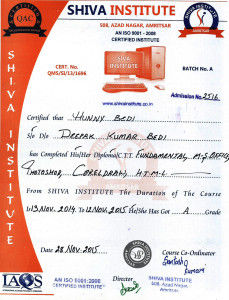 SHIVA INSTITUTE
508, AZAD NAGAR, AMRITSAR
AN ISO 9001 - 2008
CERTIFIED INSTITUTE
QAC
CERT. No.
QMS/SI/13/1696
BATCH No. A
www.shivainstitute.co.in
Admission No. 2516
SHIVA INSTITUTE
Certified that Hunny Bedi
S/o D/o Deepak Kumar Bedi
has Completed His/Her Diploma/C.T.T. Fundamental, M.S. Office,
Photoshop, CorelDraw, H.T.M.L
From SHIVA INSTITUTE The Duration of The Course
13 Nov. 2014 To 12 Nov. 2015 He/She Has Got A Grade
Date 28 Nov. 2015
Course Co-Ordinator
Santosh Kumari
Director
AN ISO 9001:2008
CERTIFIED INSTITUTE
SHIVA INSTITUTE
508, Azad Nagar
Amritsar
IAQS